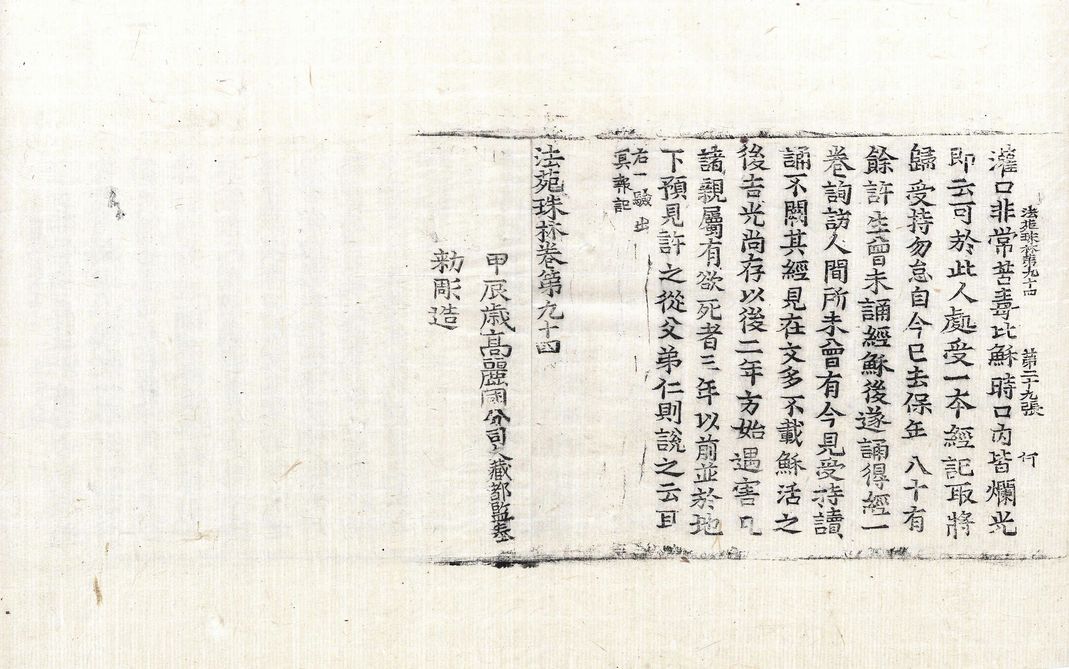 法苑珠林第九十四 第二十九張 何
灌口非常苦毒比穌時口內皆爛光
即云可於此人處受一本經記取將
歸受持勿怠自今已去保年八十有
餘許生曾未誦經穌後遂誦得經一
卷詢訪人間所未曾有今見受持讀
誦不闕其經見在文多不載穌活之
後吉光尚存以後二年方始遇害凡
諸親屬有欲死者三年以前並於地
下預見許之從父弟仁則說之云耳
右一驗出
冥報記
法苑珠林卷第九十四
甲辰歲高麗國分司大藏都監奉
勅彫造